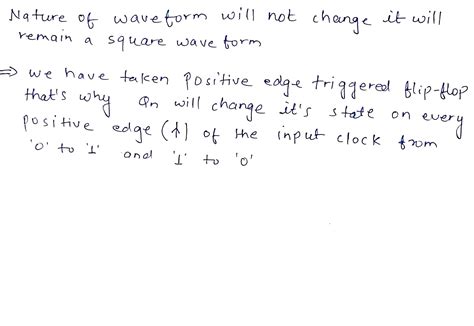 Nature of waveform will not change it will
remain a square wave form
⇒ we have taken positive edge triggered flip-flop
that's why Qn will change it's state on every
positive edge (↑) of the input clock from
'0' to '1' and '1' to '0'